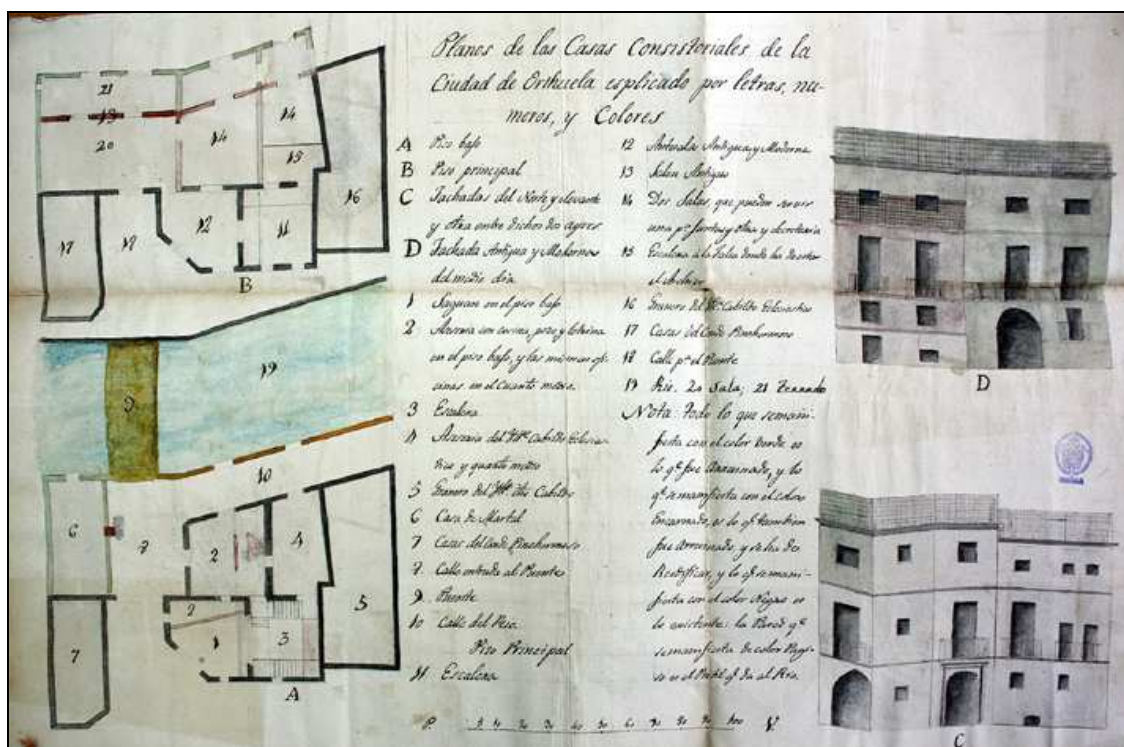 Planos de las Casas Consistoriales de la
Ciudad de Orihuela esplicado por letras, nu-
meros, y Colores
A Piso bajo
B Piso principal
C Fachadas del Norte y elevante
y otra entre dichos dos ayres
D Fachada Antigua y Moderna
del medio dia
1 Saguan en el piso bajo
2 con cocina, pozo y
en el piso bajo, y las mismas ofi-
cinas en el cuarto medio.
3 Escalera
4 del Cabildo
y quarto medio
5 Granero del Cabildo
6 Casa de
7 Casas del Conde Pinohermoso
Calle entrada al Puente
9 Puente
10 Calle del
Piso Principal
11 Escalera
12 Antesala Antigua y Moderna
13 Salon Antiguo
14 Dos Salas, que pueden servir
una pª juntas y otra pª secretaria
15 Escalera a la Sala donde ha de estar
el Archivo
16 Granero del Cabildo
17 Casas del Conde Pinohermoso
18 Calle pª el Puente
19 Rio. 20 Sala; 21
Nota: todo lo que se mani-
fiesta con el color verde es
lo qe fue arruinado, y lo
qe se manifiesta con el color
Encarnado, es lo qe tambien
fue arruinado y se ha de
Reedificar, y lo qe se mani-
fiesta con el color Negro es
lo existente: la Pared qe
se manifiesta de color
es el qe da al Rio.
21
20
14
14
15
16
17
18
12
11
B
9
19
10
6
8
2
4
5
2
1
3
7
A
D
C